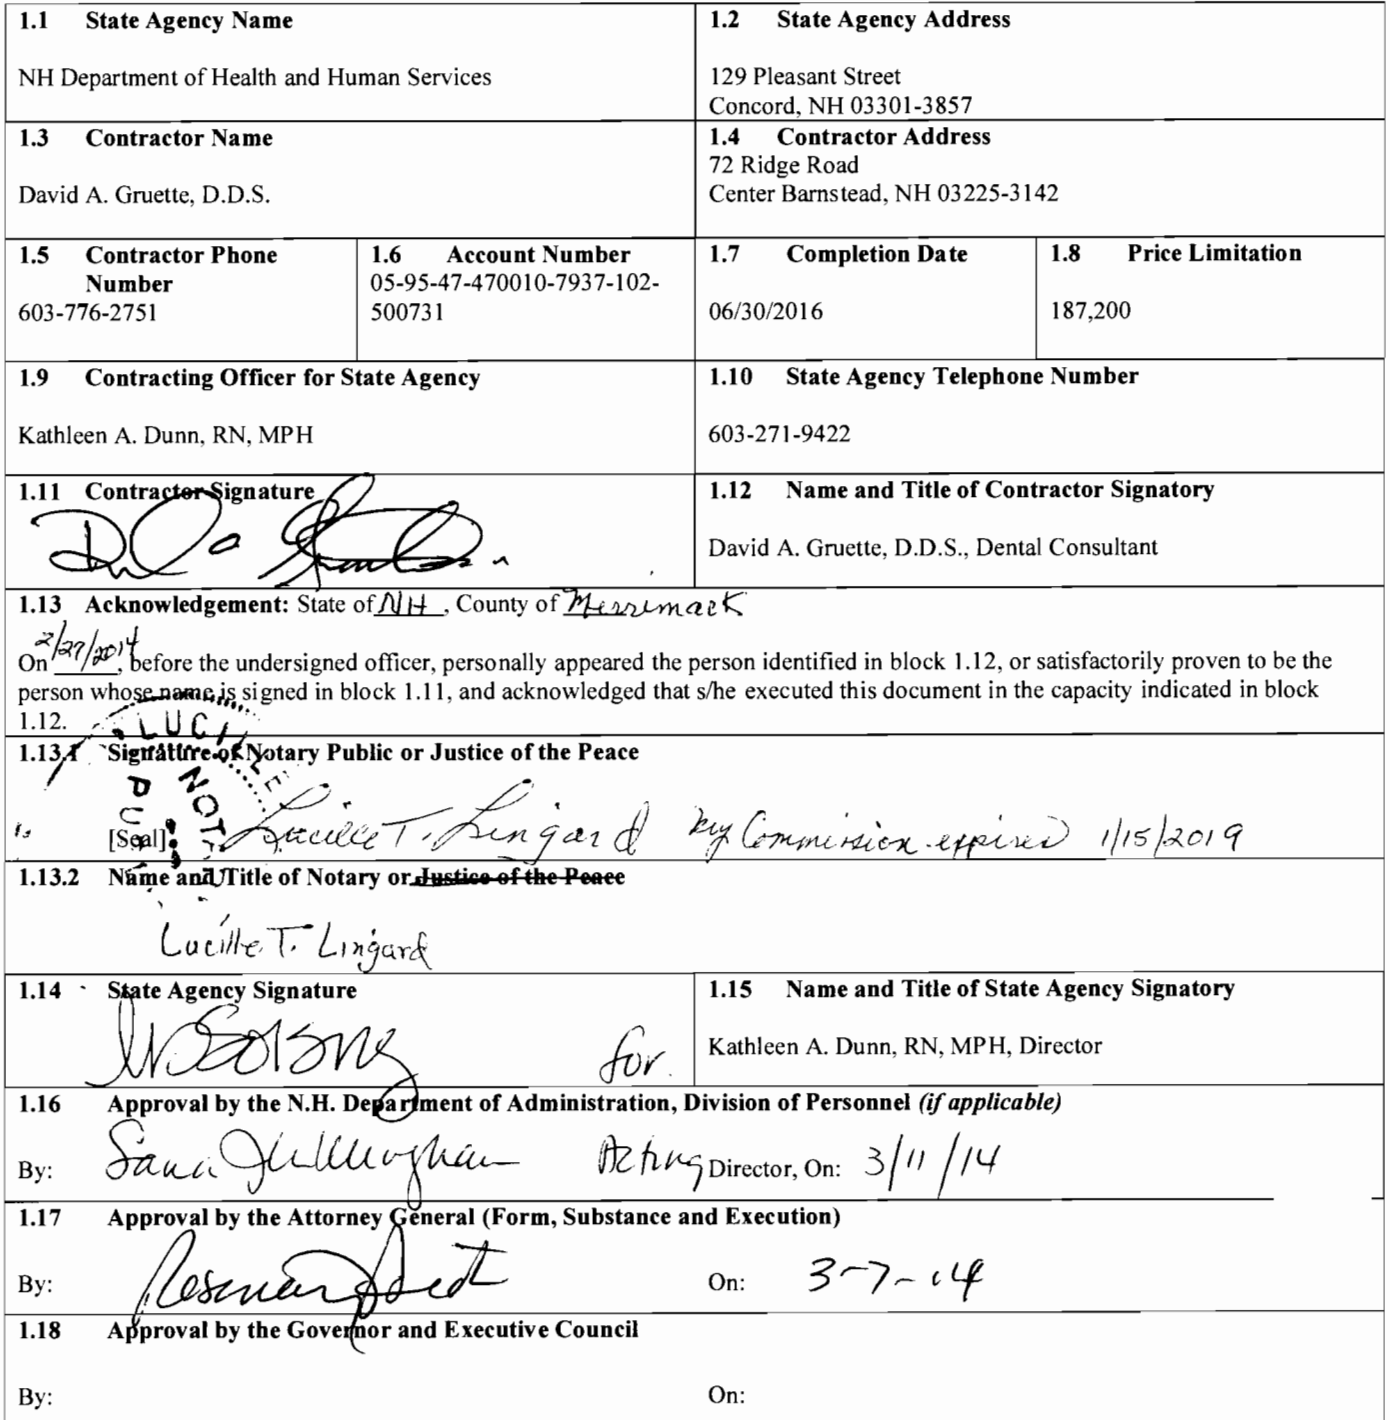 1.1 State Agency Name
NH Department of Health and Human Services
1.2 State Agency Address
129 Pleasant Street
Concord, NH 03301-3857
1.3 Contractor Name
David A. Gruette, D.D.S.
1.4 Contractor Address
72 Ridge Road
Center Barnstead, NH 03225-3142
1.5 Contractor Phone
Number
603-776-2751
1.6 Account Number
05-95-47-470010-7937-102-
500731
1.7 Completion Date
06/30/2016
1.8 Price Limitation
187,200
1.9 Contracting Officer for State Agency
Kathleen A. Dunn, RN, MPH
1.10 State Agency Telephone Number
603-271-9422
1.11 Contractor Signature
1.12 Name and Title of Contractor Signatory
David A. Gruette, D.D.S., Dental Consultant
1.13 Acknowledgement: State of NH, County of Merrimack
On 2/27/2014, before the undersigned officer, personally appeared the person identified in block 1.12, or satisfactorily proven to be the
person whose name is signed in block 1.11, and acknowledged that s/he executed this document in the capacity indicated in block
1.12.
1.13.1 Signature of Notary Public or Justice of the Peace
[Seal] Lucille T. Lingard My Commission expires 1/15/2019
1.13.2 Name and Title of Notary or Justice of the Peace
Lucille T. Lingard
1.14 State Agency Signature
for
1.15 Name and Title of State Agency Signatory
Kathleen A. Dunn, RN, MPH, Director
1.16 Approval by the N.H. Department of Administration, Division of Personnel (if applicable)
By: Acting Director, On: 3/11/14
1.17 Approval by the Attorney General (Form, Substance and Execution)
By: On: 3-7-14
1.18 Approval by the Governor and Executive Council
By: On: